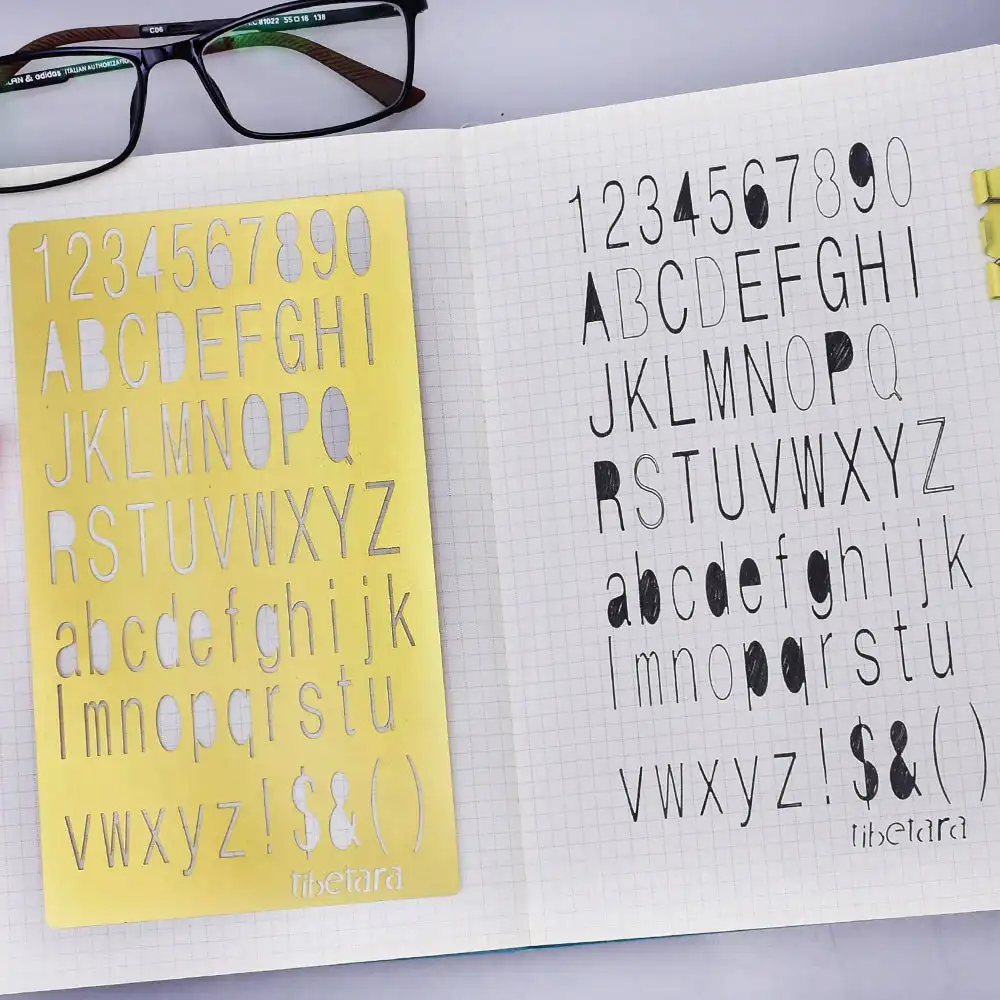 81022 55□16 138
C06
& adidas ITALIAN AUTHORIZATION
1234567890
ABCDEFGHI
JKLMNOPQ
RSTUVWXYZ
abcdefghijk
lmnopqrstu
vwxyz!$&()
tibetara
1234567890
ABCDEFGHI
JKLMNOPQ
RSTUVWXYZ
abcdefghijk
lmnopqrstu
vwxyz!$&()
tibetara